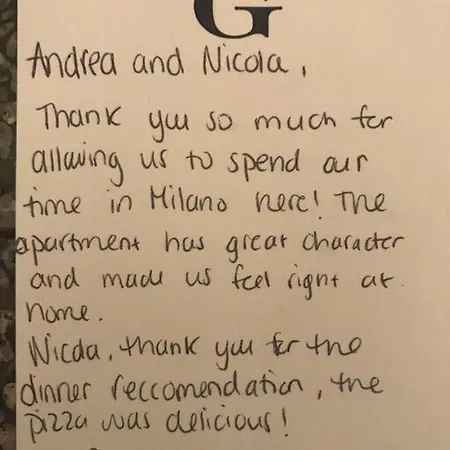 G
Andrea and Nicola,
Thank you so much for
allowing us to spend our
time in Milano here! The
apartment has great character
and made us feel right at
home.
Nicola, thank you for the
dinner reccomendation, the
pizza was delicious!